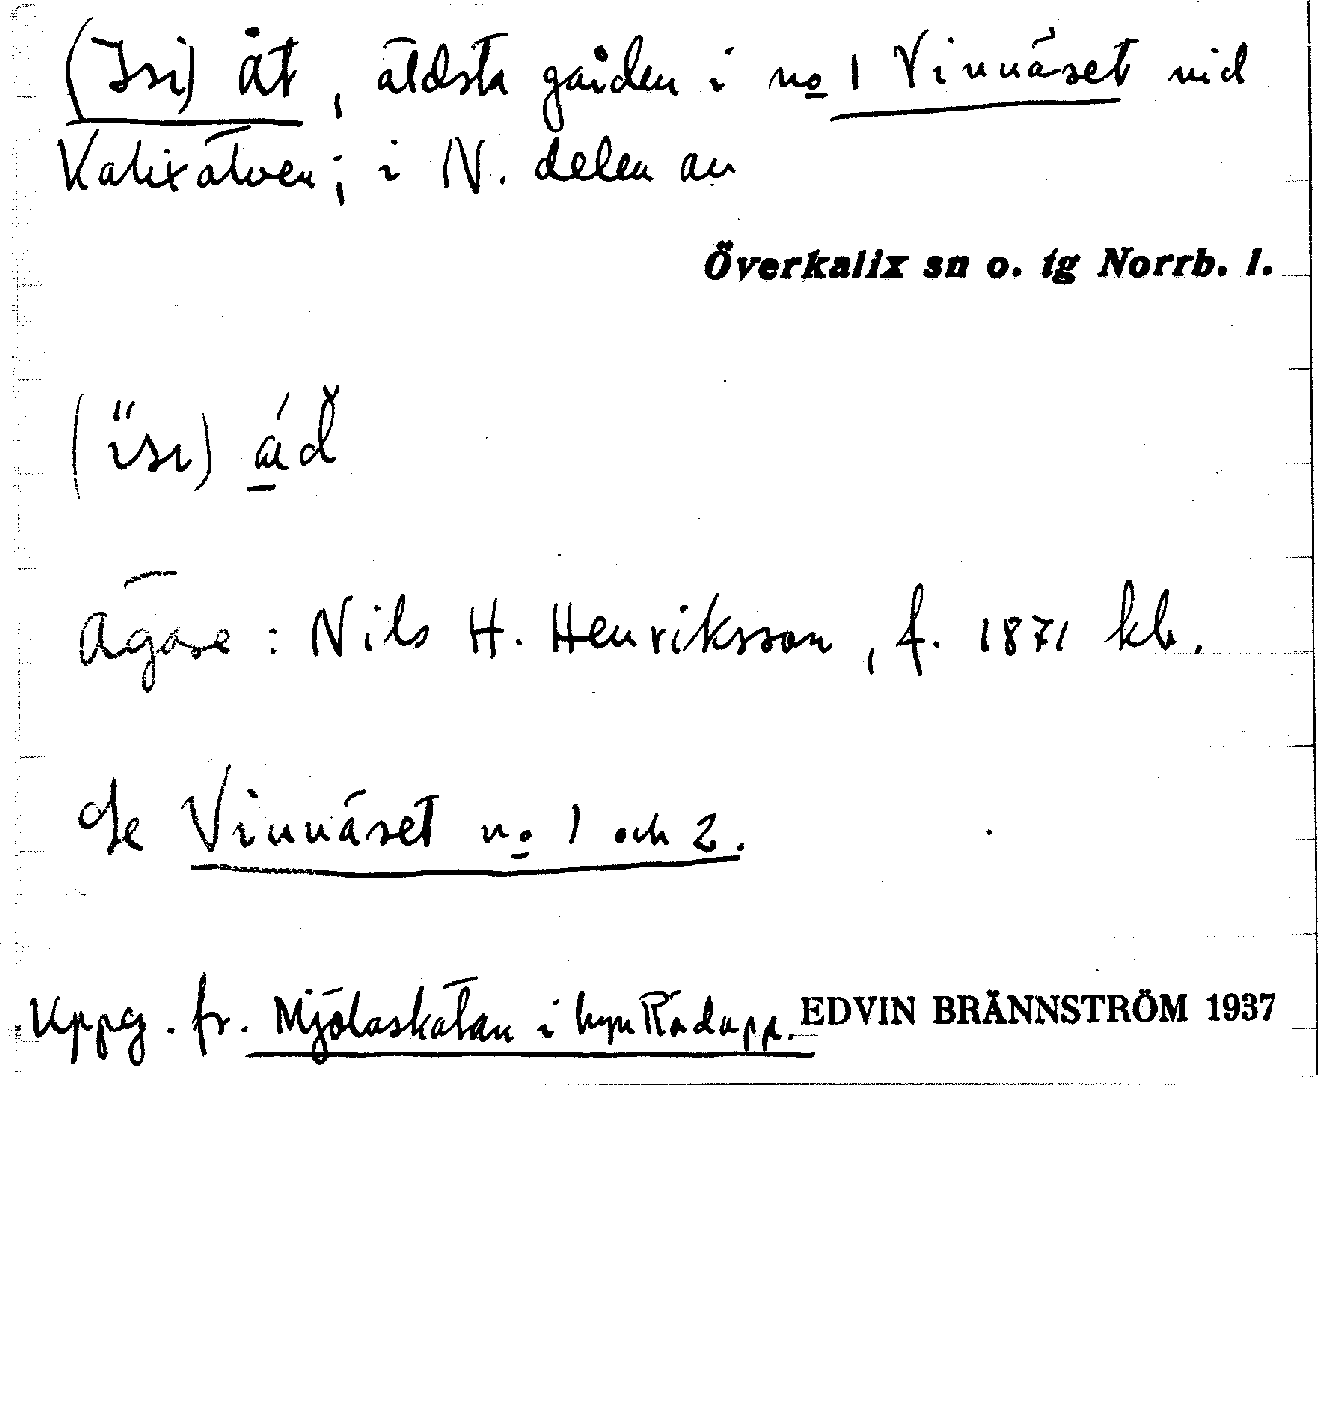 (Isi) åt, äldsta gården i no 1 Vinnäset vid
Kalixälven; i N. delen av
Överkalix sn o. tg Norrb. l.
Ägare: Nils H. Henriksson, f. 1871 kb.
Se Vinnäset no 1 och 2.
Uppg. fr. Mjölaskatan i byn Rödupp. EDVIN BRÄNNSTRÖM 1937